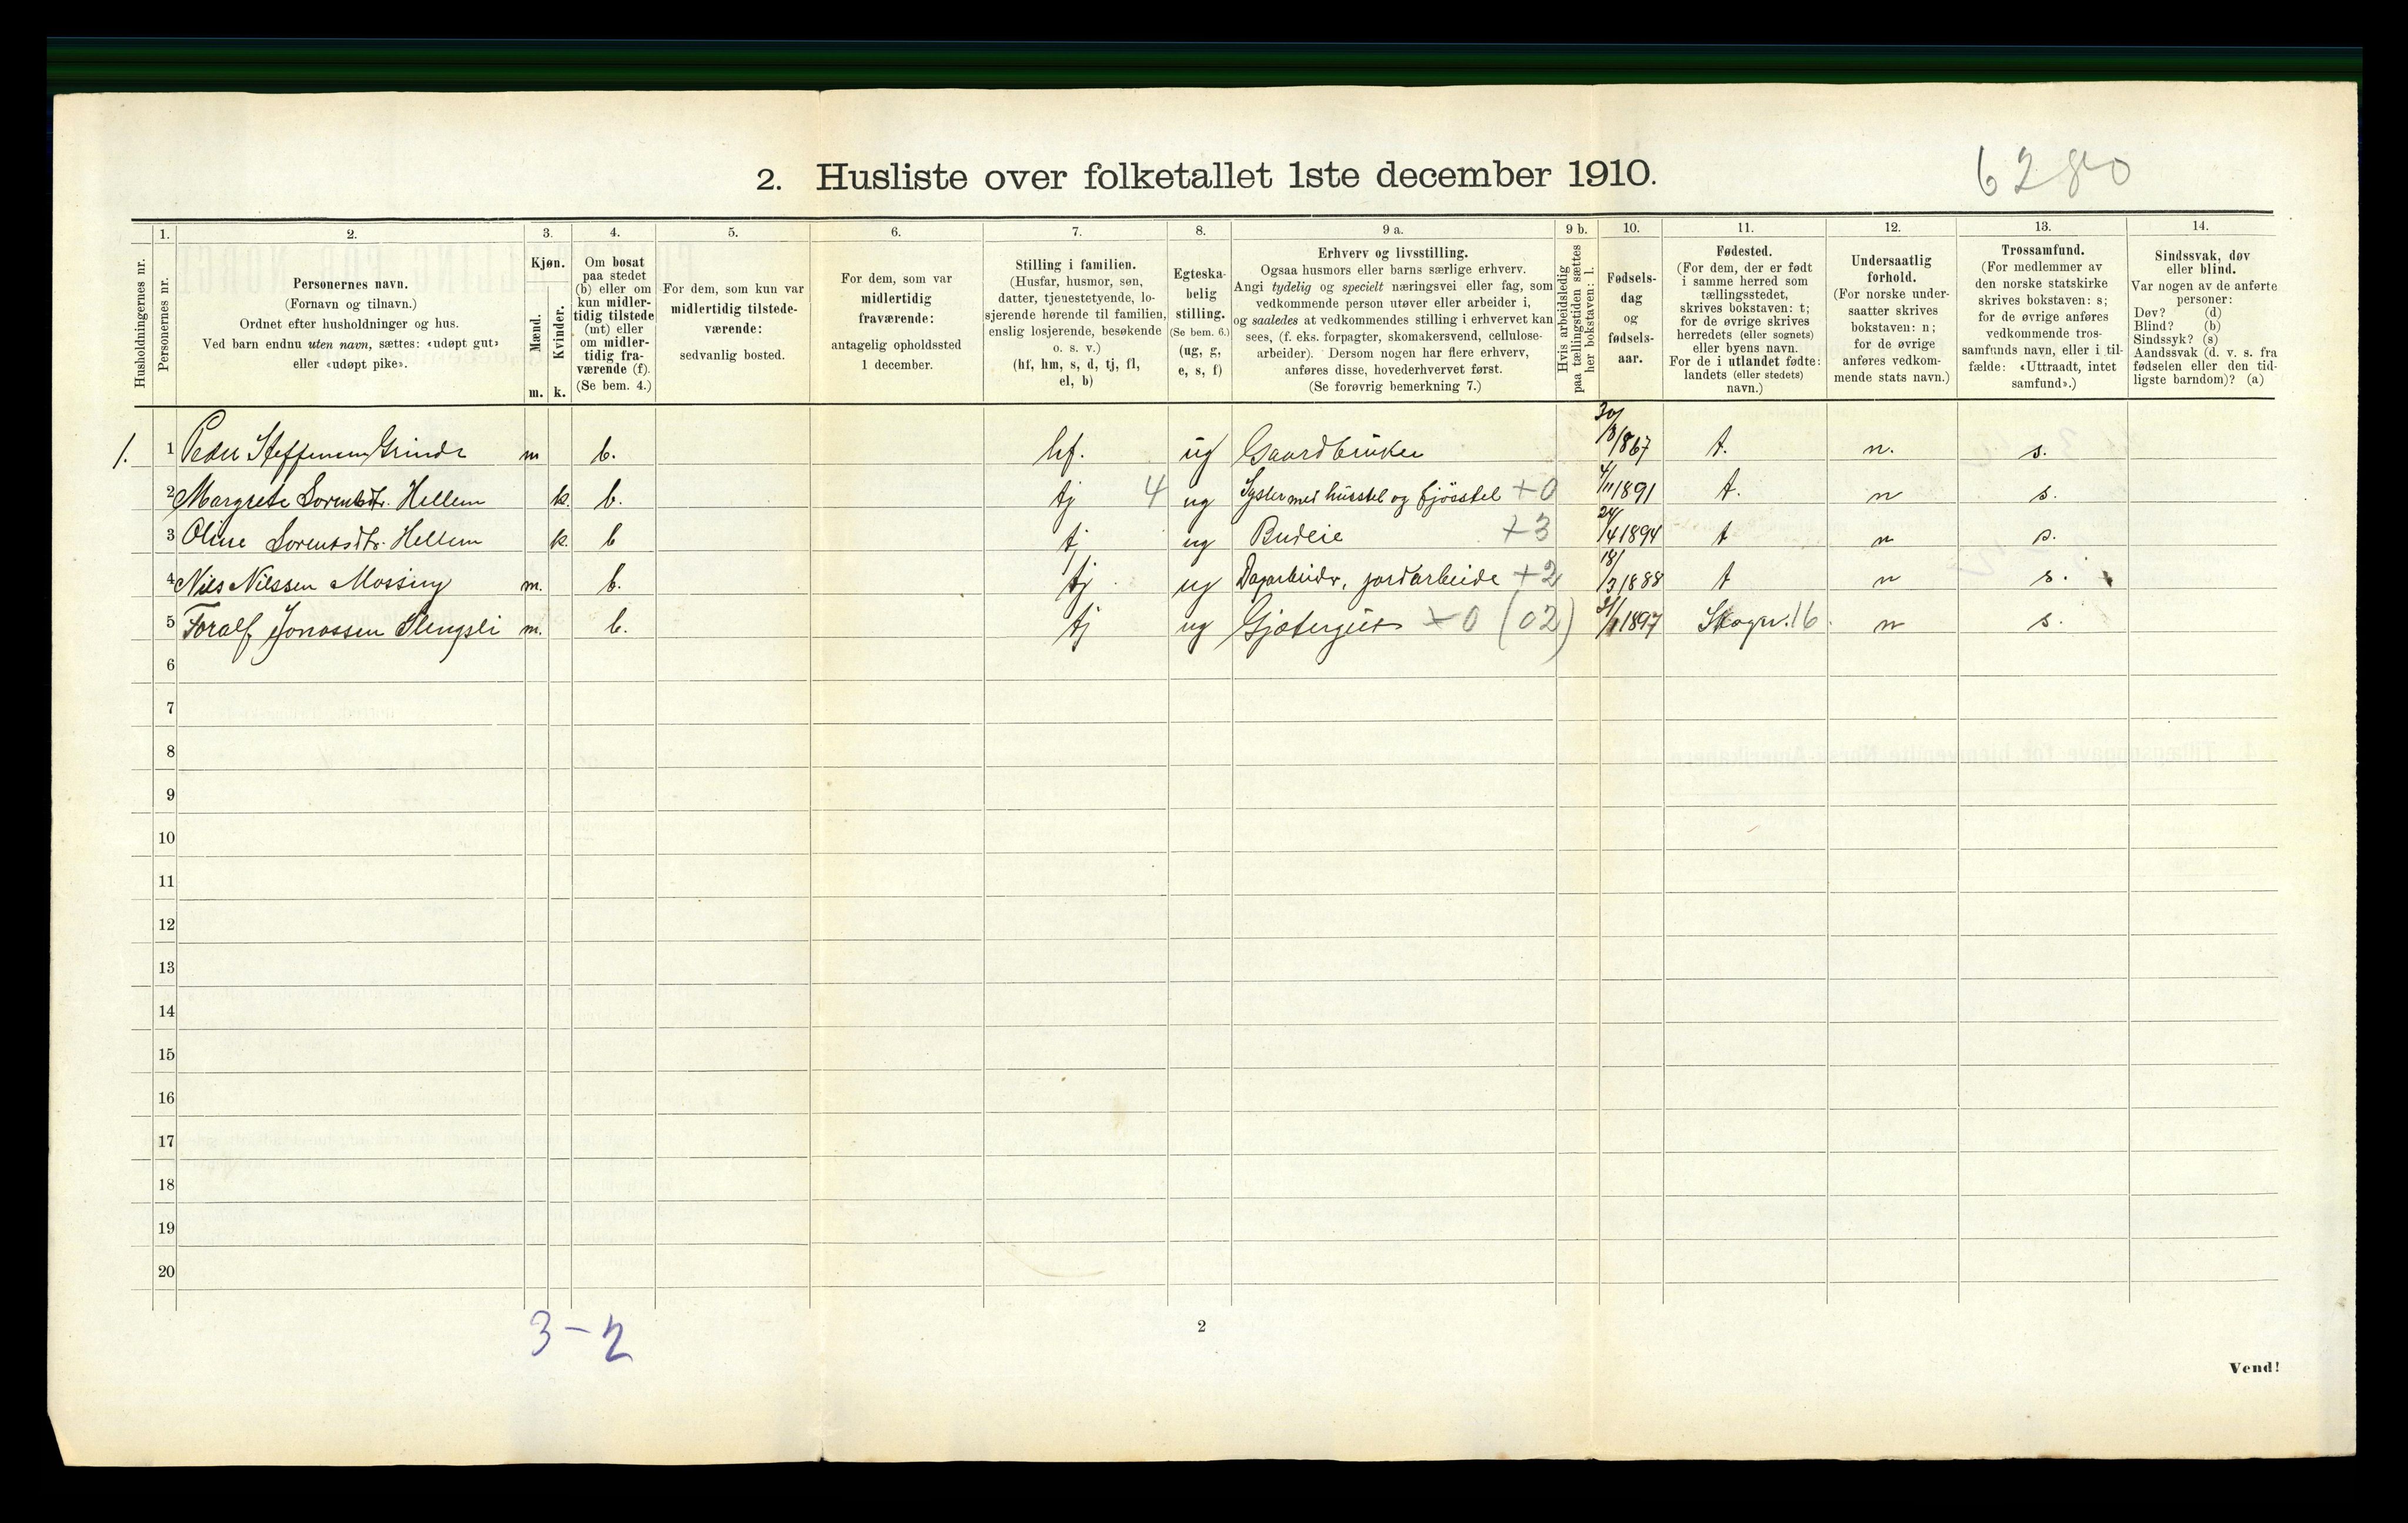 6280
2. Husliste over folketallet 1ste december 1910.
Husholdningernes nr.
1.
Personernes nr.
2.
Personernes navn.
(Fornavn og tilnavn.)
Ordnet efter husholdninger og hus.
Ved barn endnu uten navn, sættes: «udøpt gut»
eller «udøpt pike».
3.
Kjøn.
Mænd.
Kvinder.
m. k.
4.
Om bosat
paa stedet
(b) eller om
kun midler-
tidig tilstede
(mt) eller
om midler-
tidig fra-
værende (f).
(Se bem. 4.)
5.
For dem, som kun var
midlertidig tilstede-
værende:
sedvanlig bosted.
6.
For dem, som var
midlertidig
fraværende:
antagelig opholdssted
1 december.
7.
Stilling i familien.
(Husfar, husmor, søn,
datter, tjenestetyende, lo-
sjerende hørende til familien,
enslig losjerende, besøkende
o. s. v.)
(hf, hm, s, d, tj, fl,
el, b)
8.
Egteska-
belig
stilling.
(Se bem. 6.)
(ug, g,
e, s, f)
9 a.
Erhverv og livsstilling.
Ogsaa husmors eller barns særlige erhverv.
Angi tydelig og specielt næringsvei eller fag, som
vedkommende person utøver eller arbeider i,
og saaledes at vedkommendes stilling i erhvervet kan
sees, (f. eks. forpagter, skomakersvend, cellulose-
arbeider). Dersom nogen har flere erhverv,
anføres disse, hovederhvervet først.
(Se forøvrig bemerkning 7.)
9 b.
Hvis arbeidsledig
paa tællingstiden sættes
her bokstaven: l.
10.
Fødsels-
dag
og
fødsels-
aar.
11.
Fødested.
(For dem, der er født
i samme herred som
tællingsstedet,
skrives bokstaven: t;
for de øvrige skrives
herredets (eller sognets)
eller byens navn.
For de i utlandet fødte:
landets (eller stedets)
navn.)
12.
Undersaatlig
forhold.
(For norske under-
saatter skrives
bokstaven: n;
for de øvrige
anføres vedkom-
mende stats navn.)
13.
Trossamfund.
(For medlemmer av
den norske statskirke
skrives bokstaven: s;
for de øvrige anføres
vedkommende tros-
samfunds navn, eller i til-
fælde: «Uttraadt, intet
samfund».)
14.
Sindssvak, døv
eller blind.
Var nogen av de anførte
personer:
Døv? (d)
Blind? (b)
Sindssyk? (s)
Aandssvak (d. v. s. fra
fødselen eller den tid-
ligste barndom)? (a)
1. 1 Peder Steffensen Grinde m b. hf. ug Gaardbruker 30/8 1867 t. n. s.
2 Margrete Lorentsdtr. Hellem k. b. tj 4 ug Sysler med husstel og fjösstel +0 4/11 1891 t. n s.
3 Oline Lorentsdtr. Hellem k. b tj ug Budeie +3 24/4 1894 t n s.
4 Nils Nilssen Mossing m. b. tj ug Dagarbeider, jordarbeide +2 18/3 1888 t n s.
5 Toralf Jonassen Slengsli m. b. tj ug Gjætergut +0 (02) 1897 Skogn. 16. n s.
6
7
8
9
10
11
12
13
14
15
16
17
18
19
20
3-2
2
Vend!